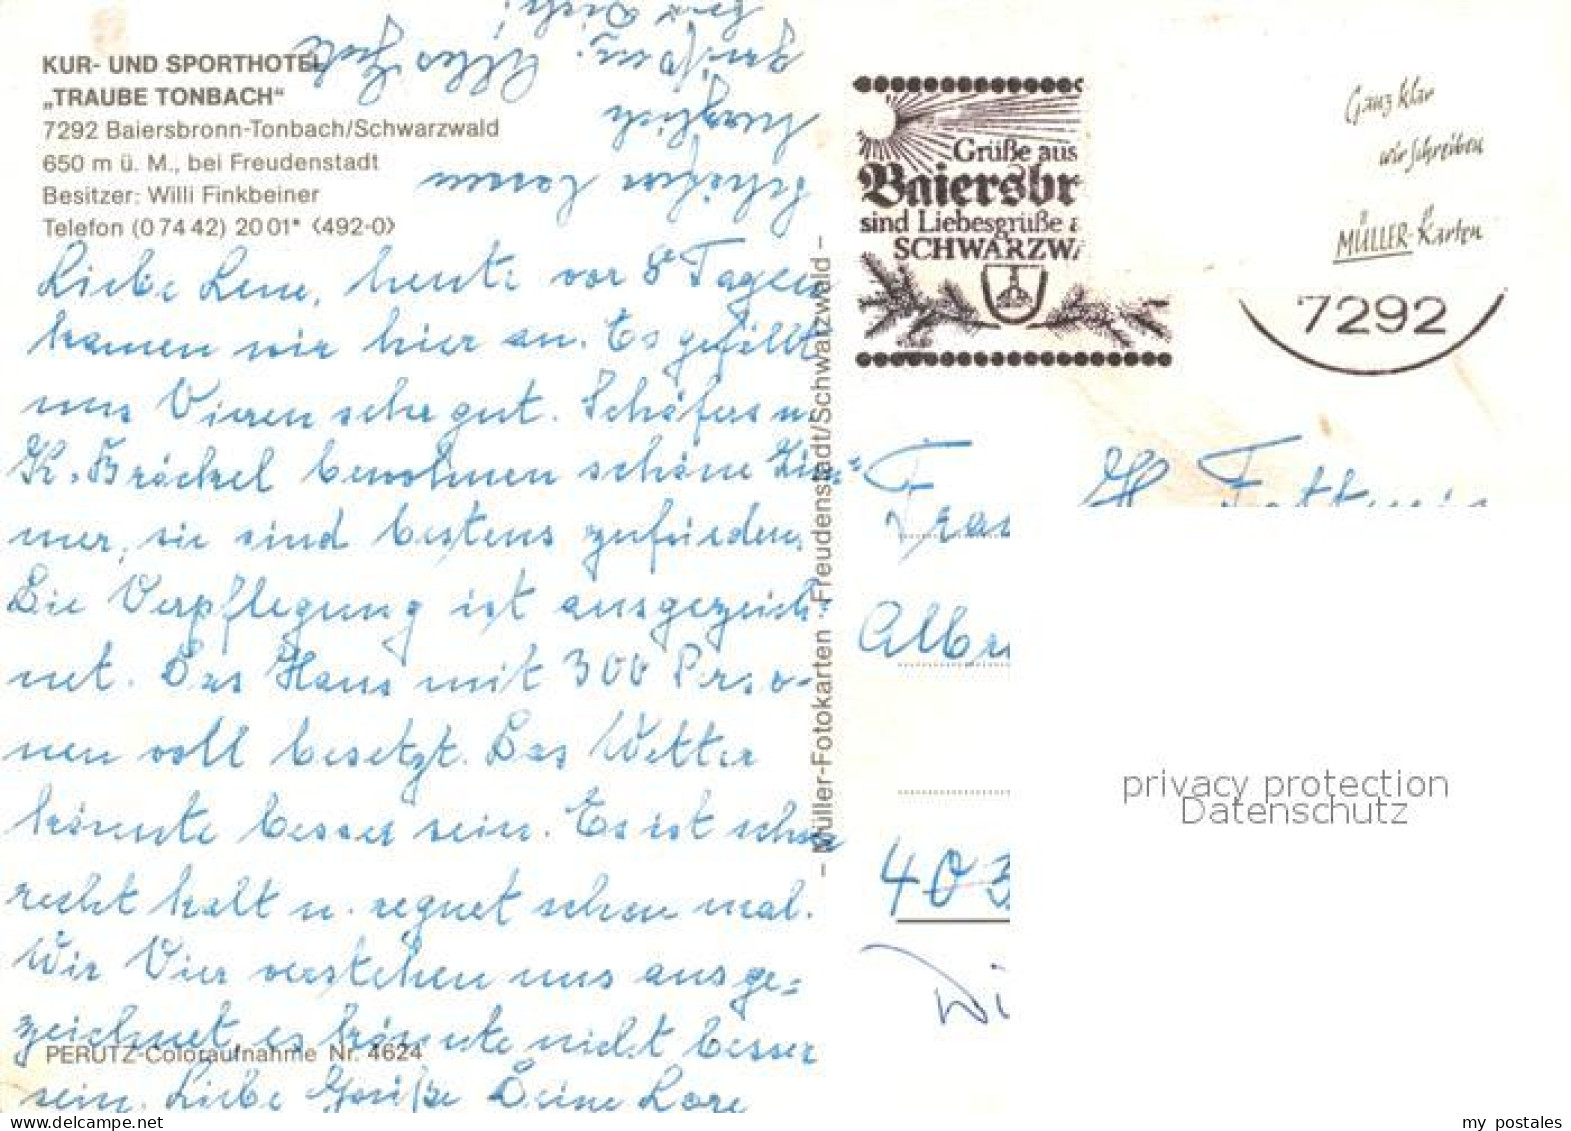 KUR- UND SPORTHOTEL
„TRAUBE TONBACH“
7292 Baiersbronn-Tonbach/Schwarzwald
650 m ü. M., bei Freudenstadt
Besitzer: Willi Finkbeiner
Telefon (0 74 42) 20 01* <492-0>
Liebe Lene, heute vor 8 Tagen
kamen wir hier an. Es gefällt
uns Vieren sehr gut. Schäfers u.
K. Bröckel bewohnen schöne Zim=
mer, sie sind bestens zufrieden.
Die Verpflegung ist ausgezeich=
net. Das Haus mit 300 Perso-
nen voll besetzt. Das Wetter
könnte besser sein. Es ist schon
recht kalt u. regnet schon mal.
Wir Vier verstehen uns ausge=
zeichnet, es könnte nicht besser
sein. Liebe Grüße Deine Lore
PERUTZ-Coloraufnahme Nr. 4624
herzlich
Alles Gute
– Müller-Fotokarten · Freudenstadt/Schwarzwald –
Grüße aus
Baiersbr
sind Liebesgrüße a
SCHWARZWA
Ganz klar
wir schreiben
MÜLLER-Karten
7292
Frau
Albre
403
privacy protection
Datenschutz
my postales